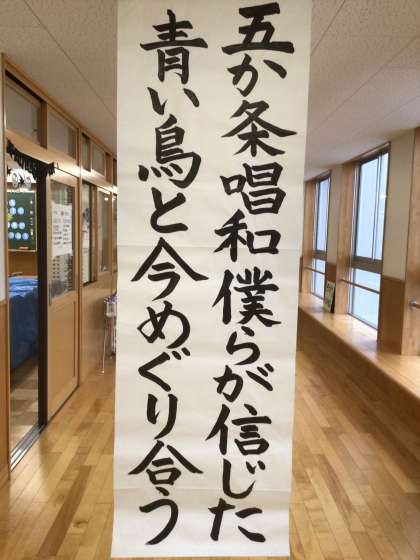 五か条唱和僕らが信じた
青い鳥と今めぐり合う